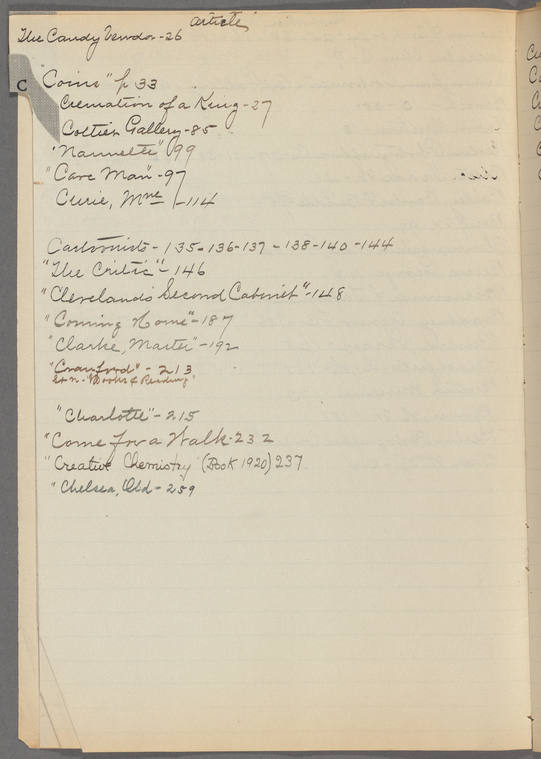 article
The Candy Vendor-26
C
"Coins" p 33
Cremation of a King-27
Cottier Gallery-85
"Nannette" 99
"Cave Man"-97
Curie, Mme-114
Cartoonists-135-136-137-138-140-144
"The Critic"-146
"Cleveland's Second Cabinet"-148
"Coming Home"-187
"Clarke, Master"-192
"Cranford"-213
"Books & Reading"
"Charlotte"-215
"Come for a Walk-232
"Creative Chemistry (Book 1920) 237.
"Chelsea, Old-259